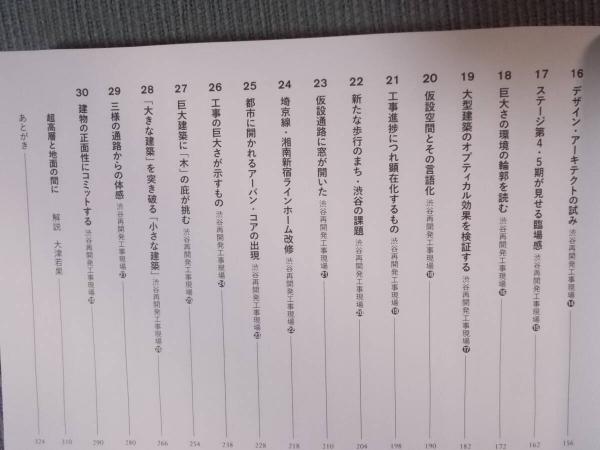 16 デザイン・アーキテクトの試み 渋谷再開発工事現場⑭ 156
17 ステージ第4・5期が見せる臨場感 渋谷再開発工事現場⑮ 162
18 巨大さの環境の輪郭を読む 渋谷再開発工事現場⑯ 172
19 大型建築のオプティカル効果を検証する 渋谷再開発工事現場⑰ 182
20 仮設空間とその言語化 渋谷再開発工事現場⑱ 190
21 工事進捗につれ顕在化するもの 渋谷再開発工事現場⑲ 198
22 新たな歩行のまち・渋谷の課題 渋谷再開発工事現場⑳ 204
23 仮設通路に窓が開いた 渋谷再開発工事現場㉑ 210
24 埼京線・湘南新宿ラインホーム改修 渋谷再開発工事現場㉒ 218
25 都市に開かれるアーバン・コアの出現 渋谷再開発工事現場㉓ 228
26 工事の巨大さが示すもの 渋谷再開発工事現場㉔ 238
27 巨大建築に「木」の庇が挑む 渋谷再開発工事現場㉕ 254
28 「大きな建築」を突き破る「小さな建築」 渋谷再開発工事現場㉖ 266
29 三様の通路からの体感 渋谷再開発工事現場㉗ 280
30 建物の正面性にコミットする 渋谷再開発工事現場㉘ 290
超高層と地面の間に 解説 大津若果 310
あとがき 324